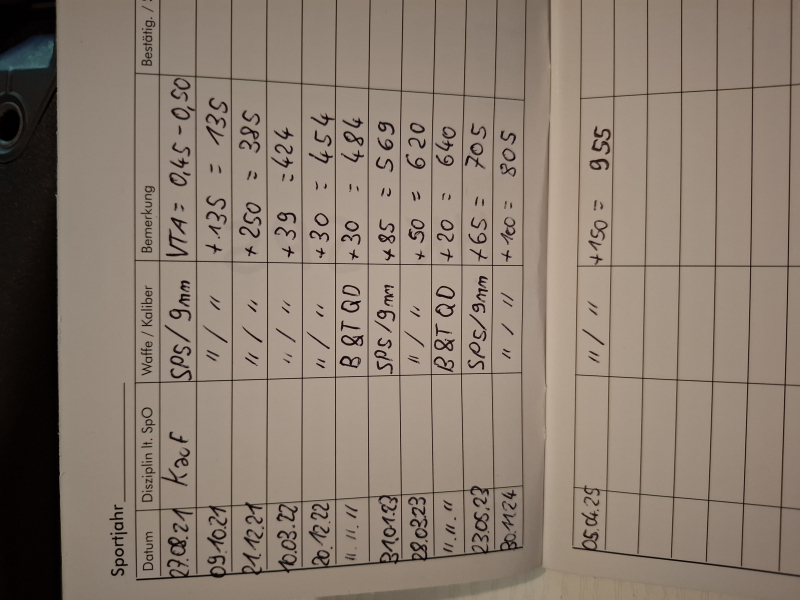 Sportjahr
Datum Disziplin lt. SpO Waffe / Kaliber Bemerkung Bestätig. /
27.08.21 Kauf SPS/9mm VTA = 0,45 - 0,50
09.10.21 " / " +135 = 135
21.12.21 " / " +250 = 385
10.03.22 " / " +39 = 424
20.12.22 " / " +30 = 454
" . " . " B&T QD +30 = 484
31.01.23 SPS/9mm +85 = 569
28.03.23 " / " +50 = 620
" . " . " B&T QD +20 = 640
23.05.23 SPS/9mm +65 = 705
30.11.24 " / " +100 = 805
05.04.25 " / " +150 = 955